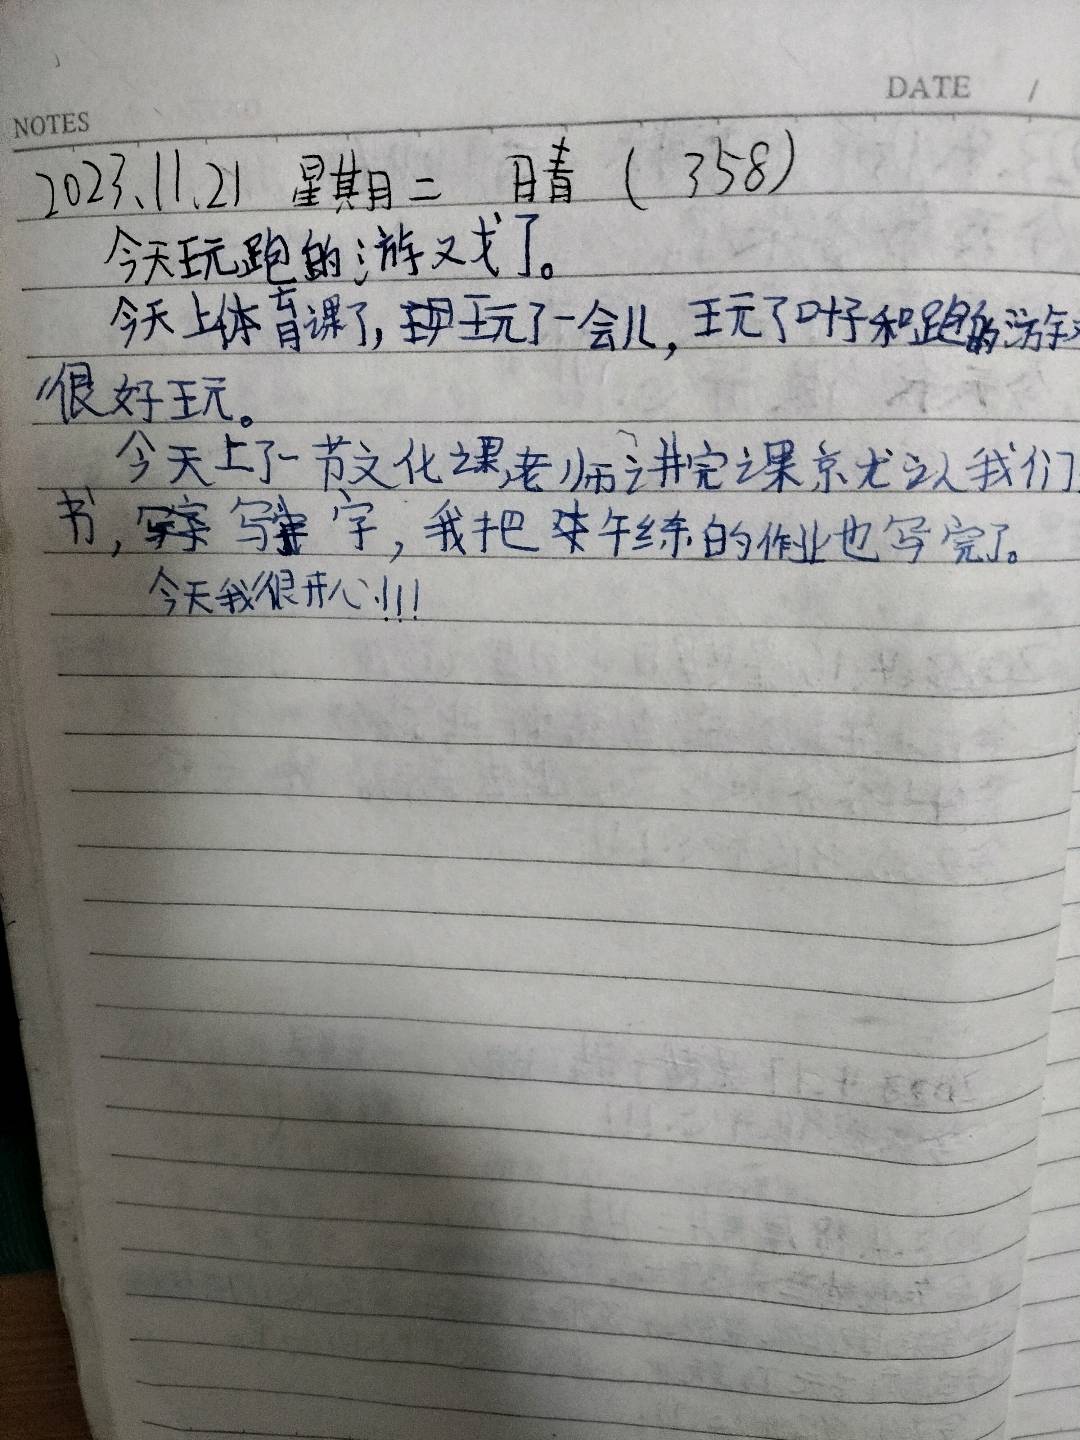 DATE /
NOTES
2023.11.21 星期二 晴 ( 358)
今天玩跑的游戏了。
今天上体育课了, 玩了一会儿, 玩了叶子和跑的游
很好玩。
今天上了一节文化课,老师讲完课就让我们
书, 写字, 我把 午练的作业也写完了。
今天我很开心!!!